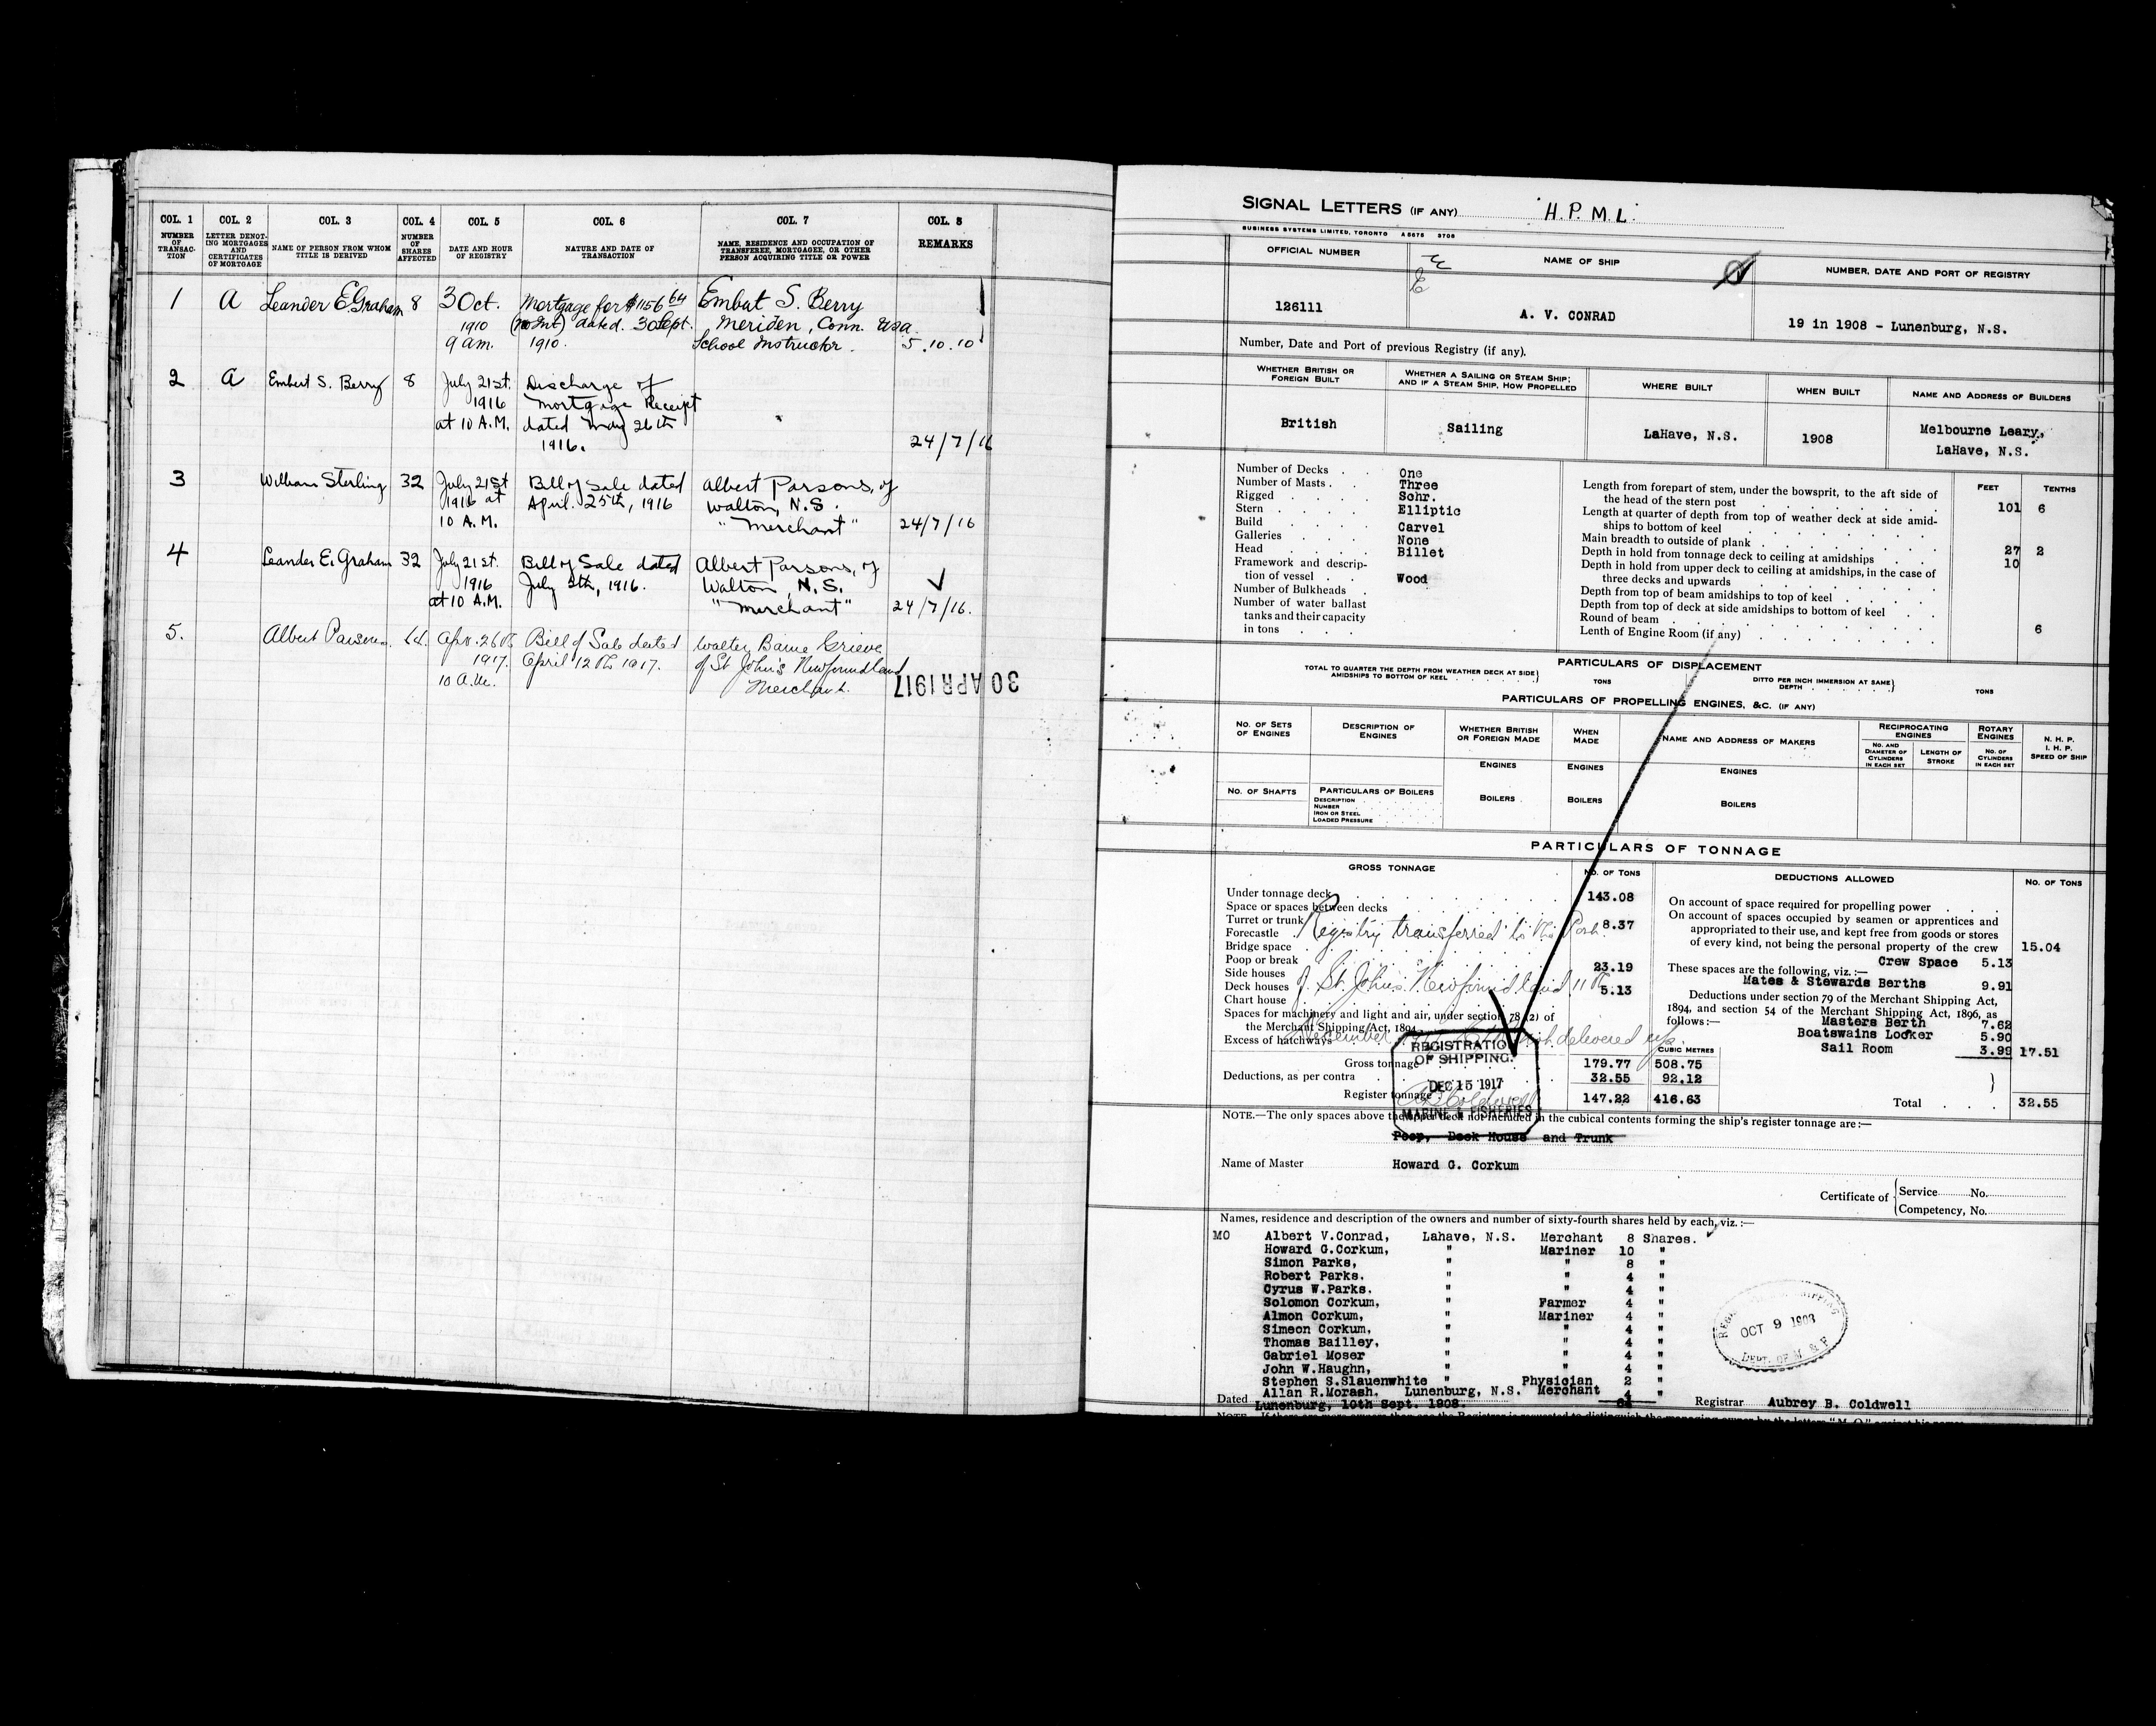 COL. 1 COL. 2 COL. 3 COL. 4 COL. 5 COL. 6 COL. 7 COL. 8
NUMBER OF TRANSAC-TION LETTER DENOT-ING MORTGAGES AND CERTIFICATES OF MORTGAGE NAME OF PERSON FROM WHOM TITLE IS DERIVED NUMBER OF SHARES AFFECTED DATE AND HOUR OF REGISTRY NATURE AND DATE OF TRANSACTION NAME, RESIDENCE AND OCCUPATION OF TRANSFEREE, MORTGAGEE, OR OTHER PERSON ACQUIRING TITLE OR POWER REMARKS
1 A Leander E. Graham 8 3 Oct. Mortgage for $1156 64 Embert S. Berry
1910 (no Int) dated 30 Sept. Meriden, Conn. USA.
9 am. 1910. School Instructor. 5.10.10
2 A Embert S. Berry 8 July 21st. Discharge of
1916 Mortgage Receipt
at 10 A.M. dated May 26th
1916. 24/7/16
3 William Sterling 32 July 21st Bill of Sale dated Albert Parsons, of
1916 at April 25th, 1916 Walton, N.S.
10 A.M. "Merchant" 24/7/16
4 Leander E. Graham 32 July 21st. Bill of Sale dated Albert Parsons, of
1916 July 5th, 1916. Walton, N.S.
at 10 A.M. "Merchant" 24/7/16.
5. Albert Parsons. 64. Apr. 26th Bill of Sale dated Walter Baine Grieve
1917. April 12th 1917. of St John's Newfoundland
10 A.M. Merchant. 30 APR 1917
SIGNAL LETTERS (IF ANY) "H.P.M.L."
BUSINESS SYSTEMS LIMITED, TORONTO A5675 3708
OFFICIAL NUMBER NAME OF SHIP NUMBER, DATE AND PORT OF REGISTRY
126111 A. V. CONRAD 19 in 1908 - Lunenburg, N.S.
Number, Date and Port of previous Registry (if any).
WHETHER BRITISH OR FOREIGN BUILT WHETHER A SAILING OR STEAM SHIP; AND IF A STEAM SHIP, HOW PROPELLED WHERE BUILT WHEN BUILT NAME AND ADDRESS OF BUILDERS
British Sailing LaHave, N.S. 1908 Melbourne Leary,
LaHave, N.S.
Number of Decks One
Number of Masts Three
Rigged Schr.
Stern Elliptic
Build Carvel
Galleries None
Head Billet
Framework and descrip-
tion of vessel Wood
Number of Bulkheads
Number of water ballast
tanks and their capacity
in tons
FEET TENTHS
Length from forepart of stem, under the bowsprit, to the aft side of
the head of the stern post 101 6
Length at quarter of depth from top of weather deck at side amid-
ships to bottom of keel
Main breadth to outside of plank 27 2
Depth in hold from tonnage deck to ceiling at amidships 10
Depth in hold from upper deck to ceiling at amidships, in the case of
three decks and upwards
Depth from top of beam amidships to top of keel
Depth from top of deck at side amidships to bottom of keel
Round of beam 6
Lenth of Engine Room (if any)
PARTICULARS OF DISPLACEMENT
TOTAL TO QUARTER THE DEPTH FROM WEATHER DECK AT SIDE AMIDSHIPS TO BOTTOM OF KEEL TONS DITTO PER INCH IMMERSION AT SAME DEPTH TONS
PARTICULARS OF PROPELLING ENGINES, &C. (IF ANY)
NO. OF SETS OF ENGINES DESCRIPTION OF ENGINES WHETHER BRITISH OR FOREIGN MADE WHEN MADE NAME AND ADDRESS OF MAKERS RECIPROCATING ENGINES ROTARY ENGINES N. H. P. I. H. P. SPEED OF SHIP
NO. AND DIAMETER OF CYLINDERS IN EACH SET LENGTH OF STROKE NO. OF CYLINDERS IN EACH SET
ENGINES ENGINES ENGINES
NO. OF SHAFTS PARTICULARS OF BOILERS BOILERS BOILERS BOILERS
DESCRIPTION
NUMBER
IRON OR STEEL
LOADED PRESSURE
PARTICULARS OF TONNAGE
GROSS TONNAGE NO. OF TONS DEDUCTIONS ALLOWED NO. OF TONS
Under tonnage deck 143.08
Space or spaces between decks
Turret or trunk 8.37
Forecastle
Bridge space
Poop or break 23.19
Side houses
Deck houses 5.13
Chart house
Spaces for machinery and light and air, under section 78 (2) of
the Merchant Shipping Act, 1894
Excess of hatchways
Registry transferred to the Port
of St. John's Newfoundland 11th
December delivered up.
A B Coldwell
CUBIC METRES
Gross tonnage 179.77 508.75
Deductions, as per contra 32.55 92.12
Register tonnage 147.22 416.63
REGISTRATION
OF SHIPPING.
DEC 15 1917
MARINE & FISHERIES
On account of space required for propelling power
On account of spaces occupied by seamen or apprentices and
appropriated to their use, and kept free from goods or stores
of every kind, not being the personal property of the crew 15.04
Crew Space 5.13
These spaces are the following, viz. :—
Mates & Stewards Berths 9.91
Deductions under section 79 of the Merchant Shipping Act,
1894, and section 54 of the Merchant Shipping Act, 1896, as
follows :— Masters Berth 7.62
Boatswains Locker 5.90
Sail Room 3.99 17.51
Total 32.55
NOTE.—The only spaces above the upper deck not included in the cubical contents forming the ship's register tonnage are:—
Poop, Deck House and Trunk
Name of Master Howard G. Corkum
Certificate of Service No.
Competency, No.
Names, residence and description of the owners and number of sixty-fourth shares held by each, viz. :—
MO Albert V.Conrad, Lahave, N.S. Merchant 8 Shares.
Howard G.Corkum, " Mariner 10 "
Simon Parks, " " 8 "
Robert Parks. " " 4 "
Cyrus W.Parks. " " 4 "
Solomon Corkum, " Farmer 4 "
Almon Corkum, " Mariner 4 "
Simeon Corkum, " " 4 "
Thomas Bailley, " " 4 "
Gabriel Moser " " 4 "
John W.Haughn, " " 4 "
Stephen S.Slauenwhite " Physician 2 "
Allan R.Morash, Lunenburg, N.S. Merchant 4 "
64
Dated Lunenburg, 10th Sept. 1908. Registrar Aubrey B. Coldwell
OCT 9 1908
DEPT. OF M & F